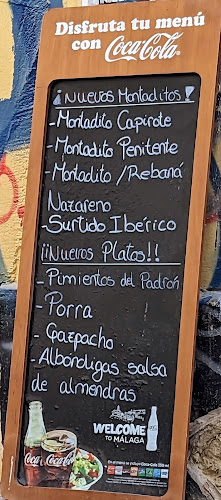 Disfruta tu menú
con Coca-Cola
¡Nuevos Montaditos!
- Montadito Capirote
- Montadito Penitente
- Montadito /Rebaná
Nazareno
- Surtido Ibérico
¡¡Nuevos Platos!!
- Pimientos del Padrón
- Porra
- Gazpacho
- Albóndigas salsa
de almendras
WELCOME
TO MÁLAGA
Coca-Cola